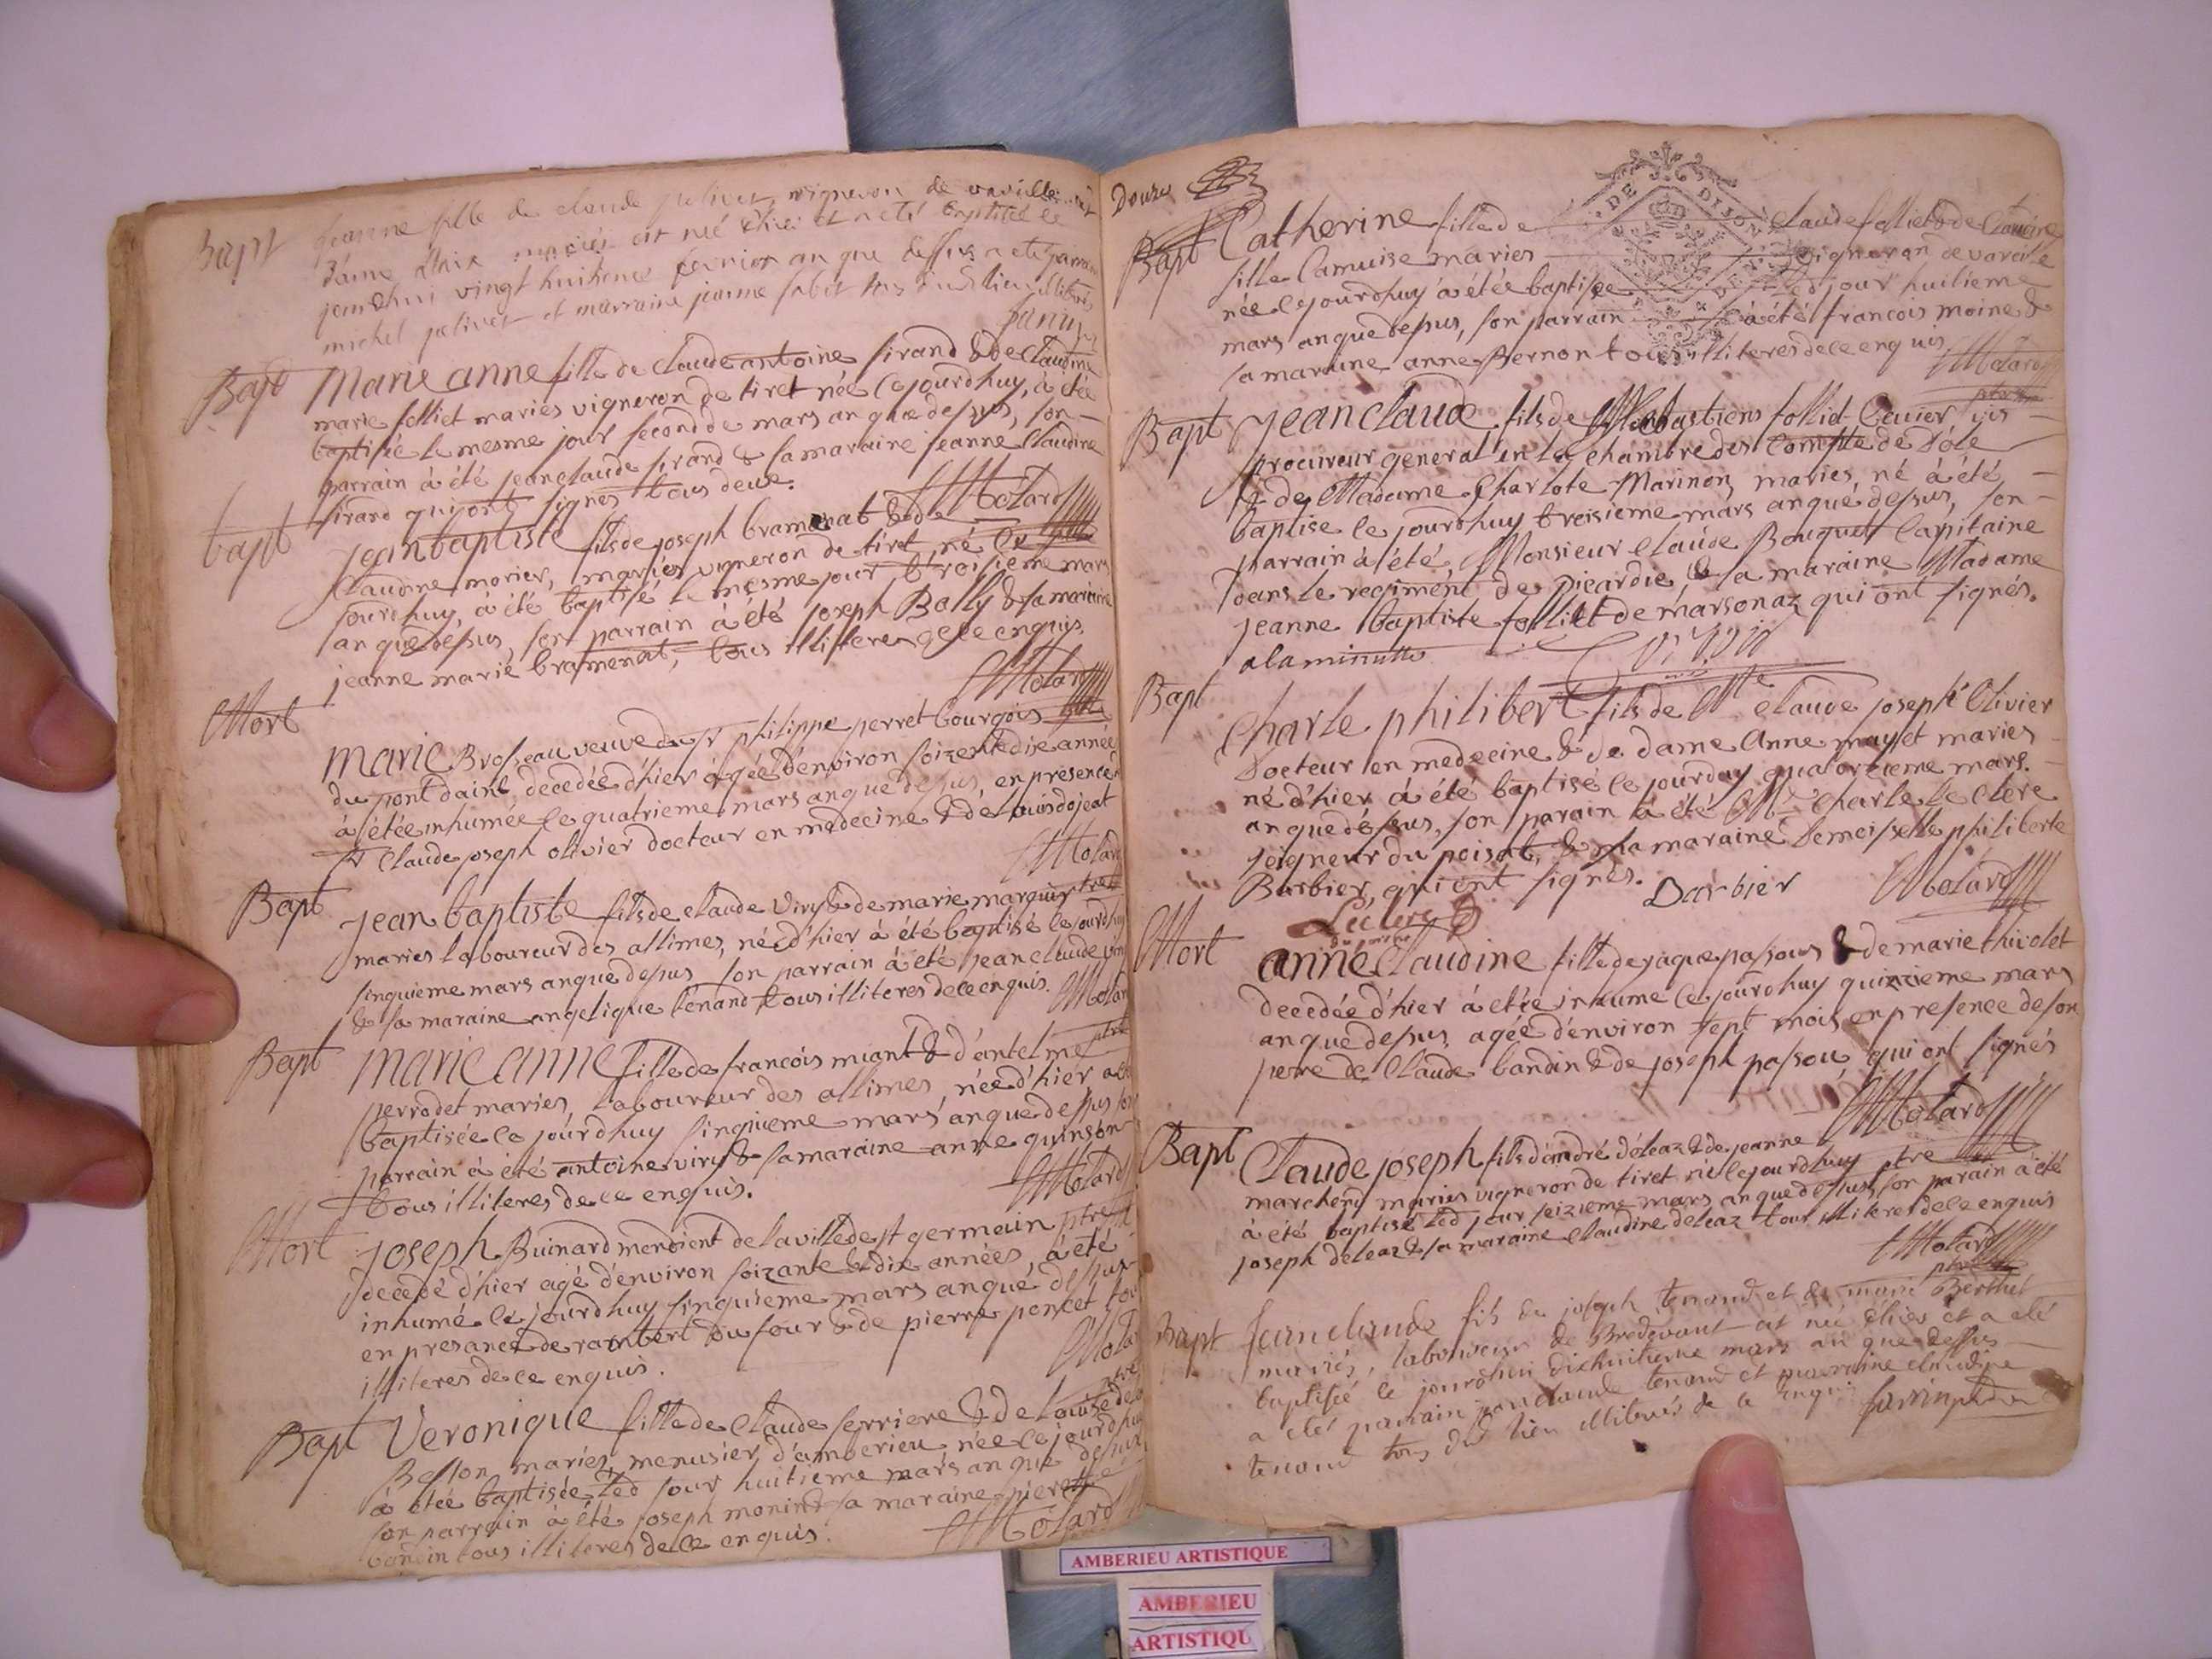 Bapt jeanne fille de claude jolivet vigneron de
mariés est né d'hier et a eté baptisée le
jourdhui vingt huitieme fevrier an que dessus a eté parrain
michel jolivet et marraine jeanne tous dud lieu illiterés
Bapt Marie anne fille de claude antoine sirand & de claudine
marie folliet mariés vigneron de tiret née cejourdhuy, à étée
baptisée le mesme jour second de mars an que dessus, son
parrain à été jean claude sirand & sa maraine jeanne claudine
sirand qui ont signes tous deux.
Molard
bapt jean baptiste fils de joseph bramerat & de
claudine monier, mariés vigneron de tiret né ce
jourdhuy, à été baptisé le mesme jour troisieme mars
an que dessus, son parrain à été joseph Bally & sa maraine
jeanne marie bramerat, tous illitteres de ce enquis.
Molard
Mort
marie Brosseau veuve du sr philippe perret bourgois
du pont dains decedée d'hier agée d'environ soizente dix année
à étée inhumée ce quatrieme mars an que dessus, en presence
sr claude joseph olivier docteur en medecine & de louis dojeat
Molard
Bapt jean baptiste fils de claude viry & de marie marquis
mariés laboureur des allimes, né d'hier à été baptisé le jourdhuy
sinquieme mars an que dessus son parrain à été jean claude
& sa maraine angelique tenand tous illiteres de ce enquis. Molard
ptre
Bapt marie anne fille de francois miant & d'antelme
perrodet mariés, laboureur des allimes, née d'hier a été
baptisée ce jourdhuy sinquieme mars an que dessus son
parrain à été antoine viry & sa maraine anne quinson
tous illiteres de ce enquis.
Molard
ptre
Mort joseph Buinard mendient de la ville de st germain
decedé d'hier agé d'environ soizante & dix années, à été
inhumé ce jourdhuy sinquieme mars an que dessus
en presance de rambert du four & de pierre poncet tous
illiteres de ce enquis.
Molard
ptre
Bapt Veronique fille de claude serriere & de louise
Besson mariés, menusier d'amberieu née ce jourdhuy
à étée baptisée led jour huitieme mars an que dessus
son parrain à été joseph monin & sa maraine pierette
bandin tous illiteres de ce enquis.
Molard
Douze
DE DIJON
Bapt Catherine fille de claude folliet & de claudine
fille Camuise mariés vigneron de vareille
née cejourdhuy à étée baptisée led jour huitieme
mars an que dessus, son parrain à été francois moine &
sa maraine anne Bernon tous illiteres de ce enquis
Molard
ptre
Bapt jean claude fils de Mr Sebastiens folliet
procureur general en la chambre des Compte de Dole
& de Madame Charlote Marinon, mariés, né à été
baptise le jourdhuy troisieme mars an que dessus, son
parrain à été, Monsieur claude Bouquet Capitaine
dans le regiment de picardie & sa maraine Madame
jeanne baptiste folliet de marsonaz qui ont signés.
a la minutte
Bapt
Charle philibert fils de Mre claude joseph Olivier
Docteur en medecine & de dame Anne mayet mariés
né d'hier à été baptisé le jourduy quatorzieme mars.
an que dessus, son parain à été Mre charle le clerc
seigneur du poisat, & sa maraine Demeiselle philiberte
Barbier, qui ont signés.
Barbier Molard
Leclerc
Mort anne claudine fille de jaque passous & de marie thivolet
decedée d'hier à étée inhume ce jourdhuy quinzieme mars
an que dessus agée d'environ sept mois en presence de son
pere de claude bandin & de joseph passou, qui ont signés
Molard
ptre
Bapt Claude joseph fils d'andré deleaz & de jeanne
marchend mariés vigneron de tiret né le jourdhuy
à été baptisé led jour seizieme mars an que dessus, son parain à été
joseph deleaz & sa maraine claudine deleaz tous illiteres de ce enquis
Molard
ptre
Bapt jean claude fils de joseph tenand et de marie Berthet
mariés, laboureur de Bredevant est né d'hier et a eté
baptisé le jourdhui dixhuitieme mars an que dessus
a eté parrain jean claude tenand et marraine claudine
tenand tous du lieu illiterés de ce enquis
AMBERIEU ARTISTIQUE
AMBERIEU
ARTISTIQU